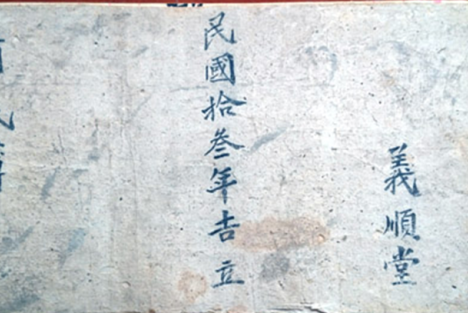 義順堂
民國拾叁年吉立